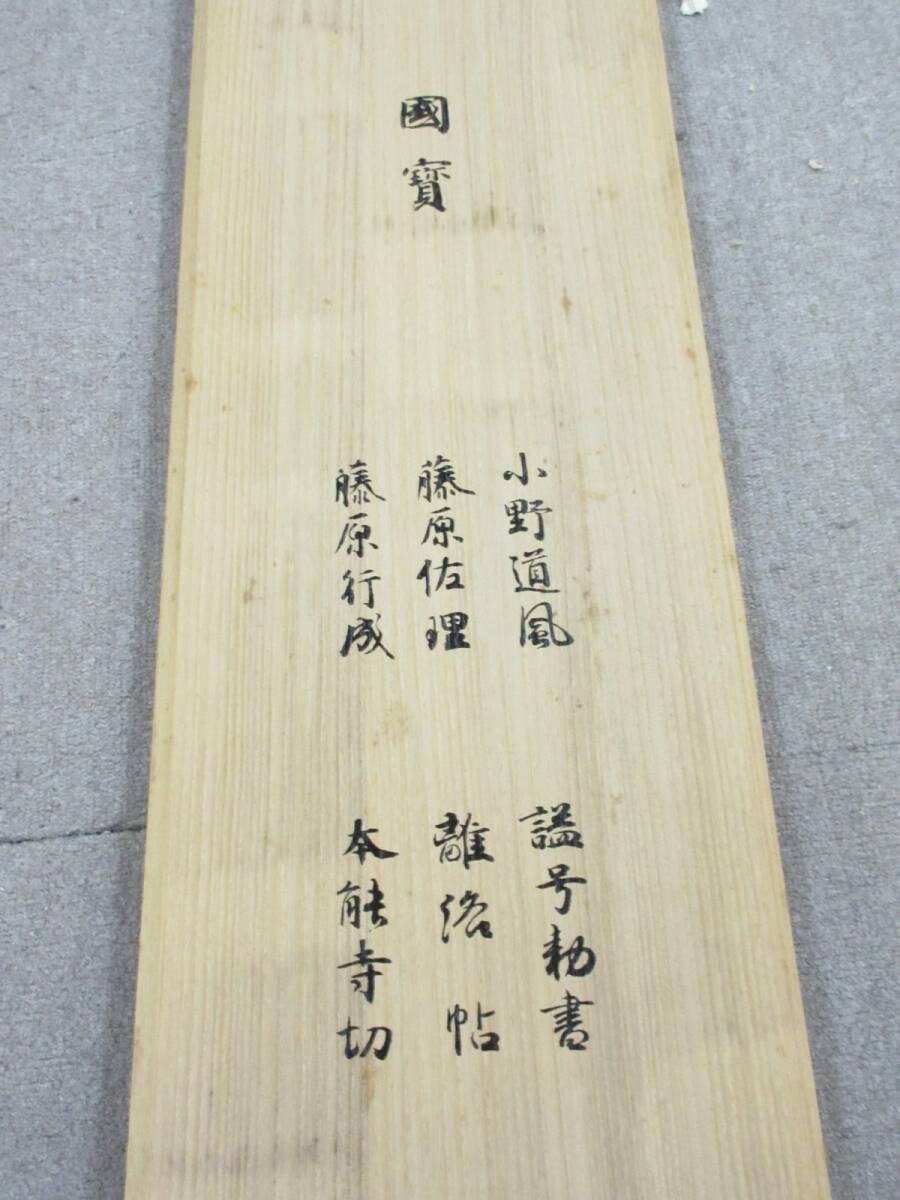 國寳
小野道風 謚号勅書
藤原佐理 離洛帖
藤原行成 本能寺切